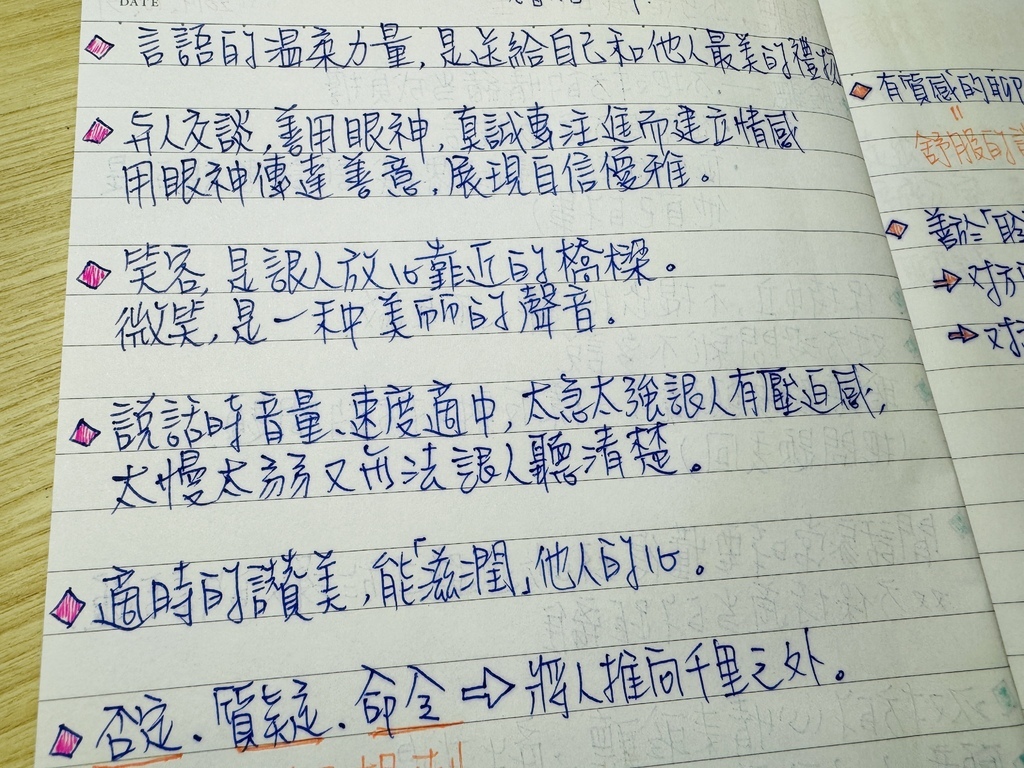 DATE
言語的溫柔力量，是送給自己和他人最美的禮物
与人交談，善用眼神，真誠專注進而建立情感
用眼神傳達善意，展現自信優雅。
笑容，是讓人放心靠近的橋樑。
微笑，是一种美丽的聲音。
說話時音量、速度適中，太急太強讓人有壓迫感，
太慢太弱又无法讓人聽清楚。
適時的讚美，能「滋潤」他人的心。
否定、質疑、命令⇨將人推向千里之外。
有質感的
=
舒服的
善於「聆
⇨对方
⇨对